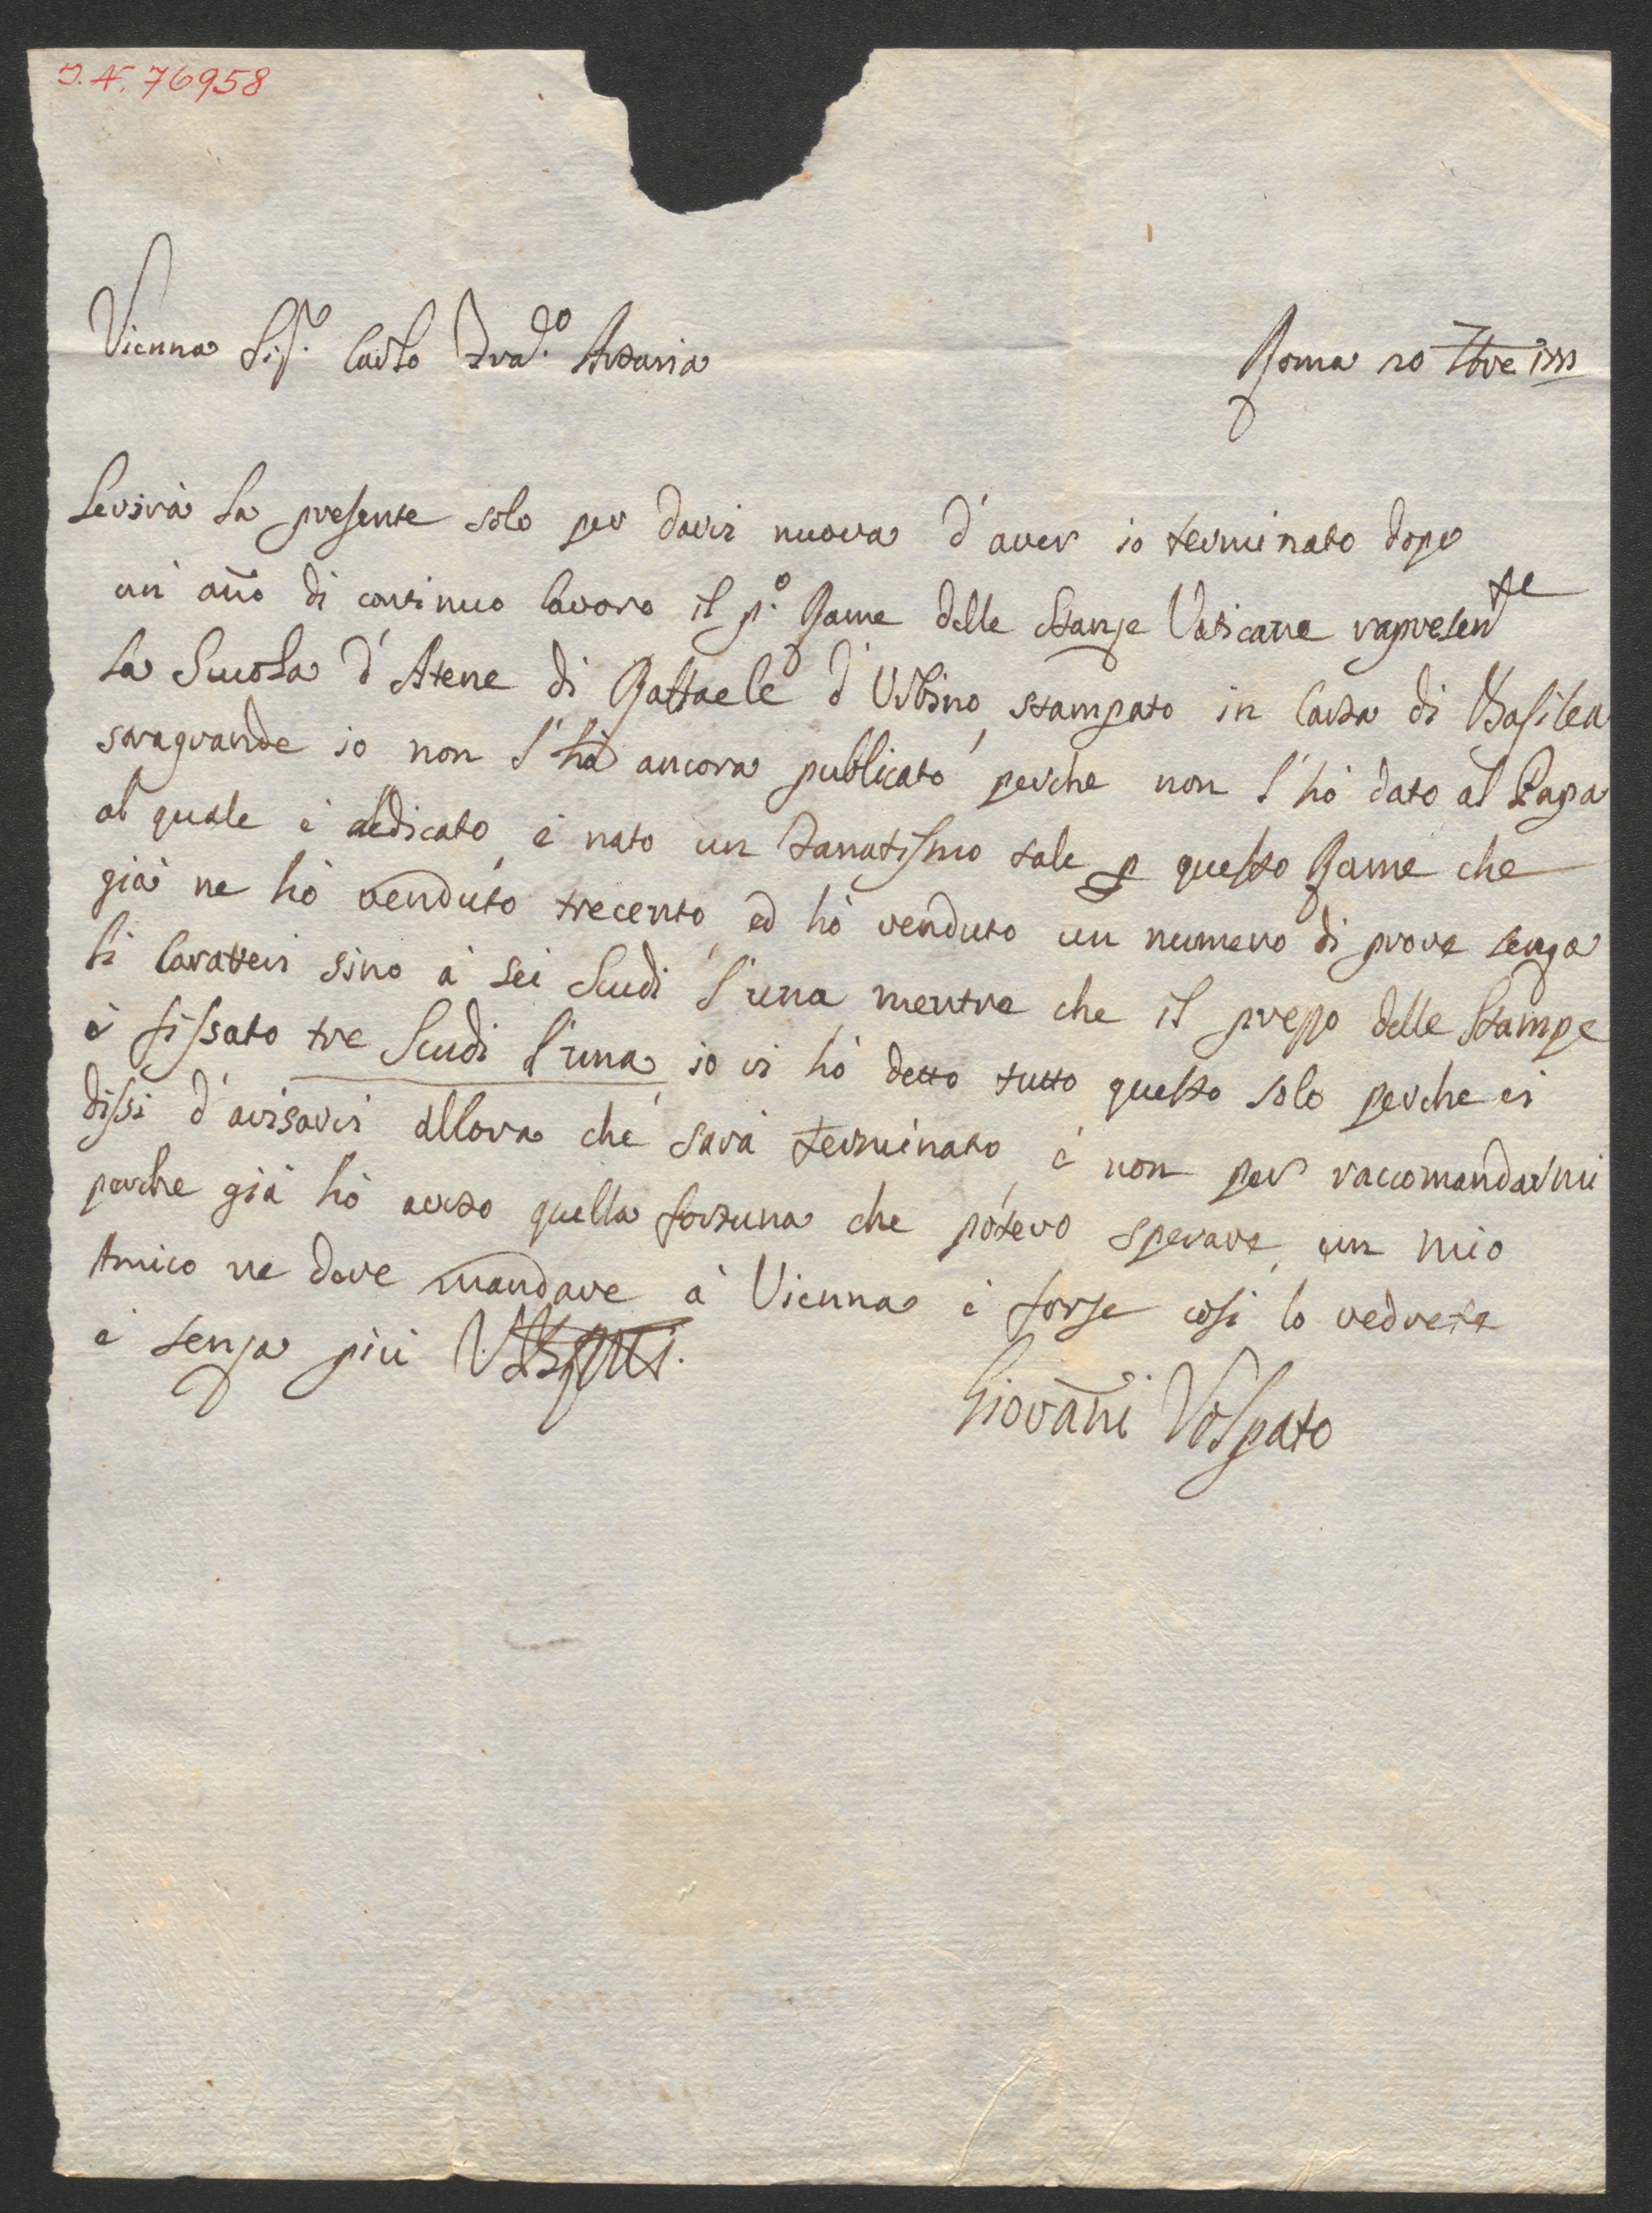 I.N. 76958
Vienna Sig.r Carlo Artaria
Roma 20 7bre
Servirà la presente solo per darvi nuova d'aver io terminato dopo
un' año di continuo lavoro il p.o Rame delle stanze Vaticane rapresen.te
la Scuola d'Atene di Raffaele d'Urbino, stampato in Carta di Basilea
soragrande io non l'hò ancora publicato perche non l'hò dato al Papa
al quale è dedicato, è nato un fanatismo tale p questo Rame che
già ne hò venduto trecento, ed hò venduto un numero di prove senza
li Caratteri sino à sei Scudi l'una mentre che il prezzo delle Stampe
è fissato tre Scudi l'una, io vi hò detto tutto questo solo perche vi
dissi d'avisarvi allora che sarà terminato, è non per raccomandarmi
perche già hò avuto quella fortuna che potevo sperare, un mio
Amico ne deve mandare à Vienna è forse cosi lo vedrete
è senza più
Giovañi Volpato